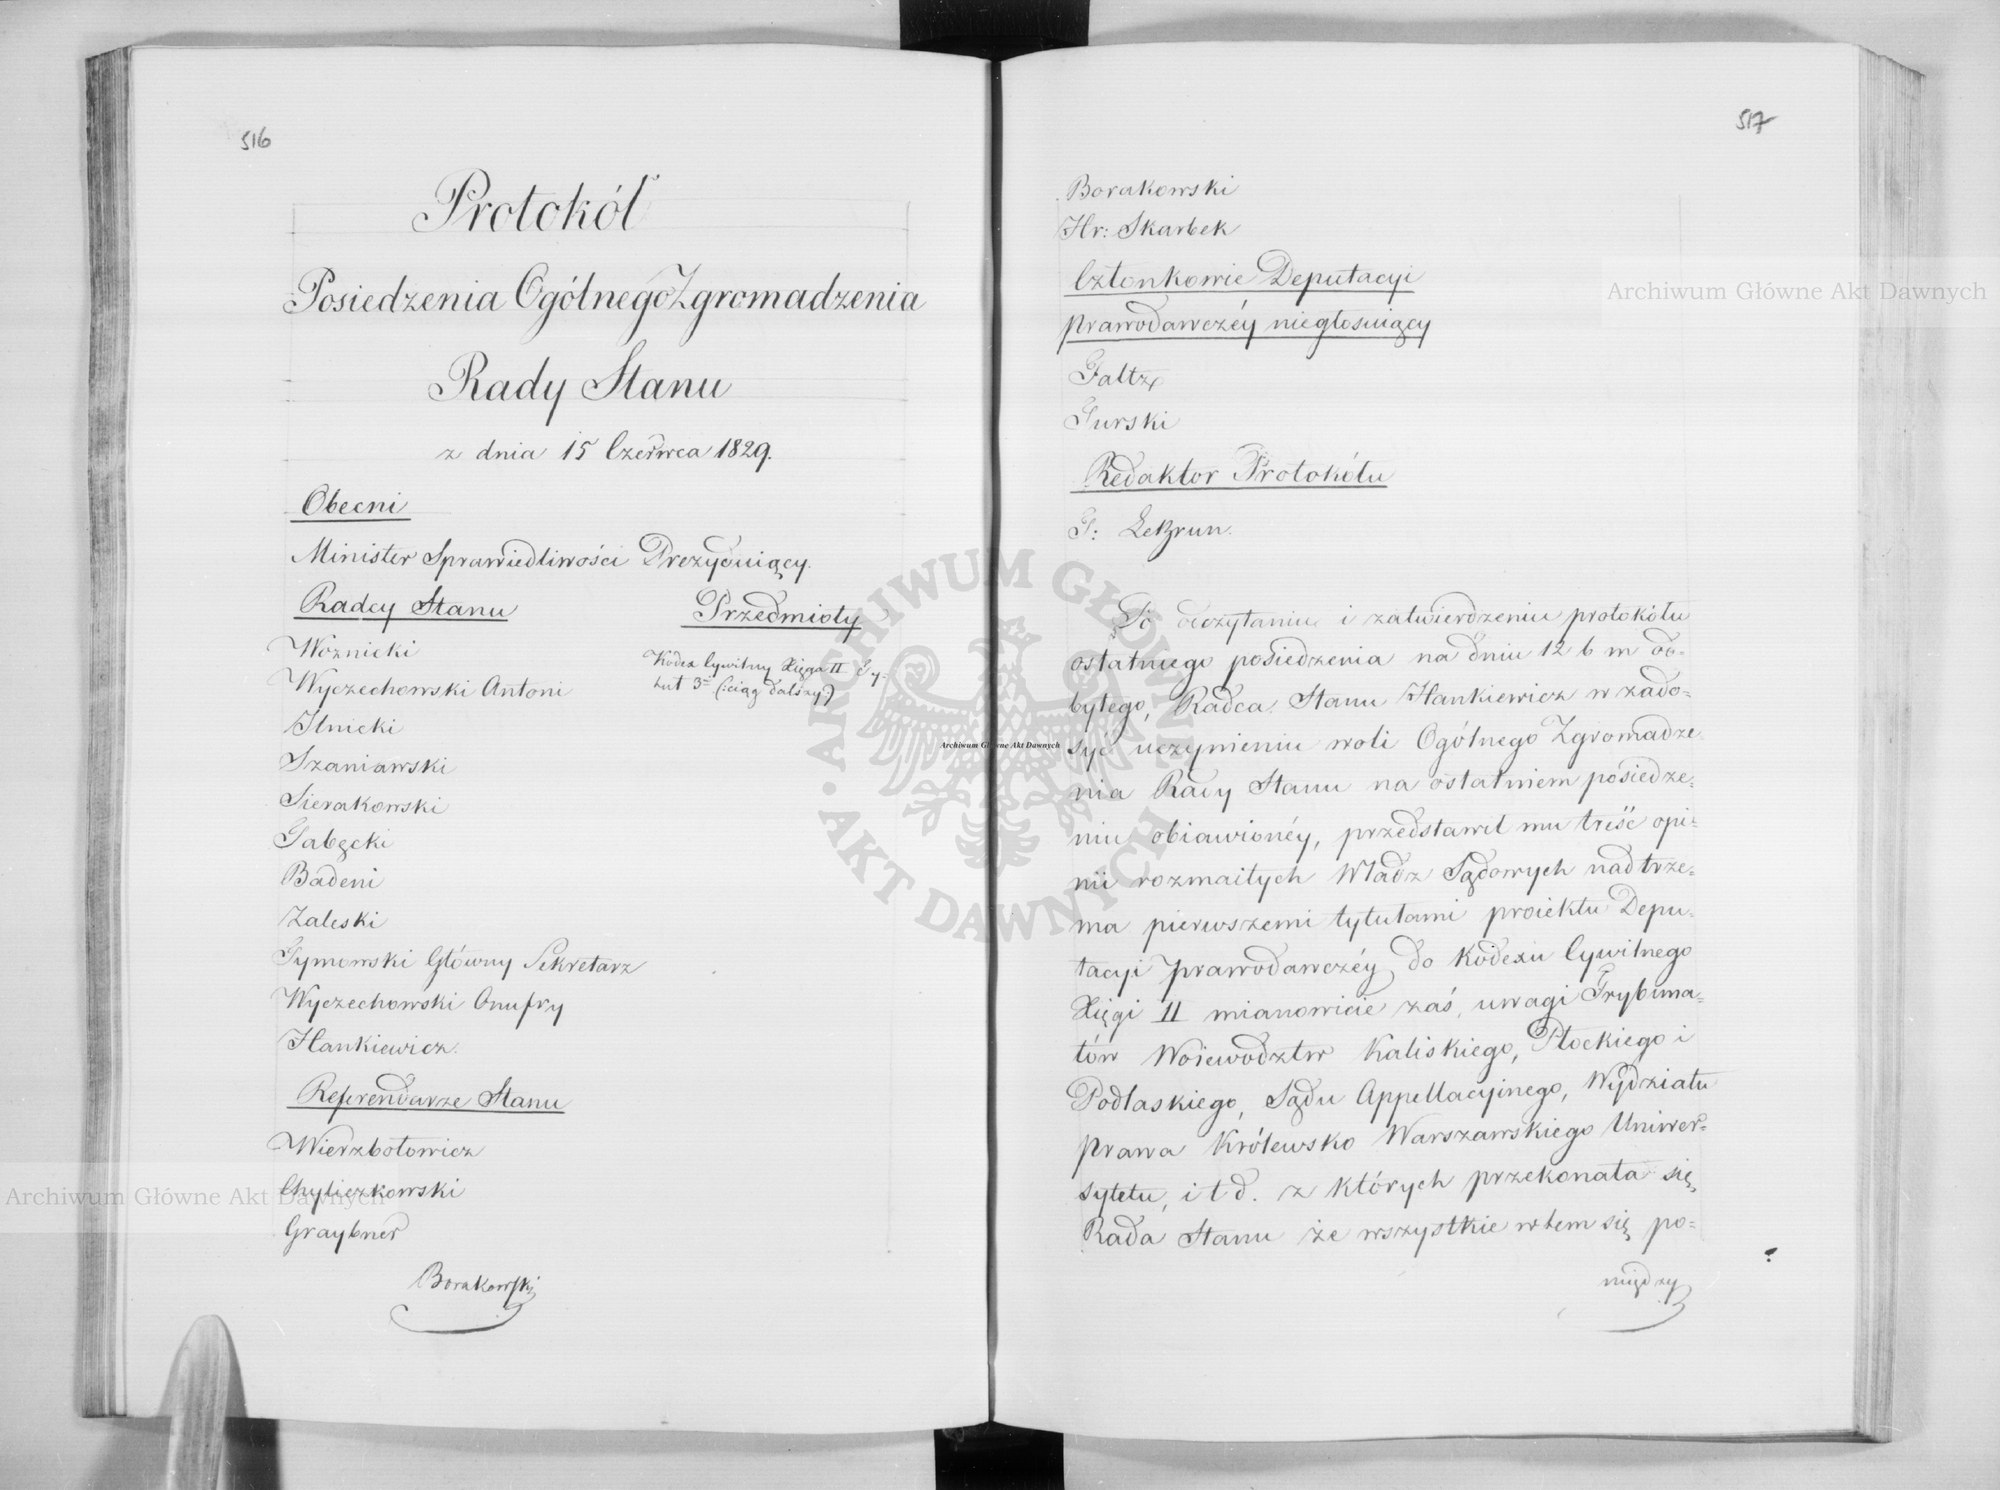 516
Protokół
Posiedzenia Ogólnego Zgromadzenia
Rady Stanu
z dnia 15 Czerwca 1829.
Obecni
Minister Sprawiedliwości Prezyduiący.
Radcy Stanu
Woźnicki
Wyczechowski Antoni
Ilnicki
Szaniawski
Sierakowski
Gąbęcki
Badeni
Zaleski
Tymowski Główny Sekretarz
Wyczechowski Onufry
Hankiewicz.
Referendarze Stanu
Wierzbołowicz
Chyliczkowski
Graybner
Borakowski
Przedmioty
Kodex Cywilny Xięga II Ty-
tuł 3ci (:ciąg dalszy:)
517
Borakowski
Hr: Skarbek
Członkowie Deputacyi
prawodawczéy niegłosuiący
Faltz
Turski
Redaktor Protokółu
F: LeBrun.
Po odczytaniu i zatwierdzeniu protokółu
ostatniego posiedzenia na dniu 12 b m od=
bytego, Radca Stanu Hankiewicz w zado=
syć uczynieniu woli Ogólnego Zgromadze
nia Rady Stanu na ostatniem posiedze=
niu obiawionéy, przedstawił mu treść opi=
nii rozmaitych Władz Sądowych nad trze=
ma pierwszemi tytułami proiektu Depu=
tacyi prawodawczéy do Kodexu Cywilnego
Xięgi II mianowicie zaś, uwagi Trybuna=
łów Woiewodztw Kaliskiego, Płockiego i
Podlaskiego, Sądu Appellacyinego, Wydziału
prawa Królewsko Warszawskiego Uniwer=
sytetu, i t d. z których przekonała się
Rada Stanu że wszystkie w tem się po=
między
Archiwum Główne Akt Dawnych
Archiwum Główne Akt Dawnych
Archiwum Główne Akt Dawnych
ARCHIWUM GŁÓWNE AKT DAWNYCH